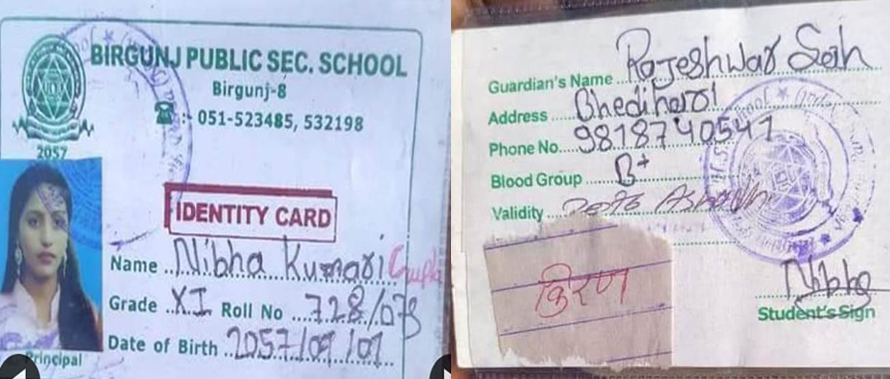 BIRGUNJ PUBLIC SEC. SCHOOL
Birgunj-8
051-523485, 532198
2057
IDENTITY CARD
Name Nibha Kumari Gupta
Grade XI Roll No 728/073
Date of Birth 2057/09/01
Principal
Guardian's Name Rajeshwar Sah
Address Bhedihari
Phone No. 9818740541
Blood Group B+
Validity 2076
किरण
Nibha
Student's Sign